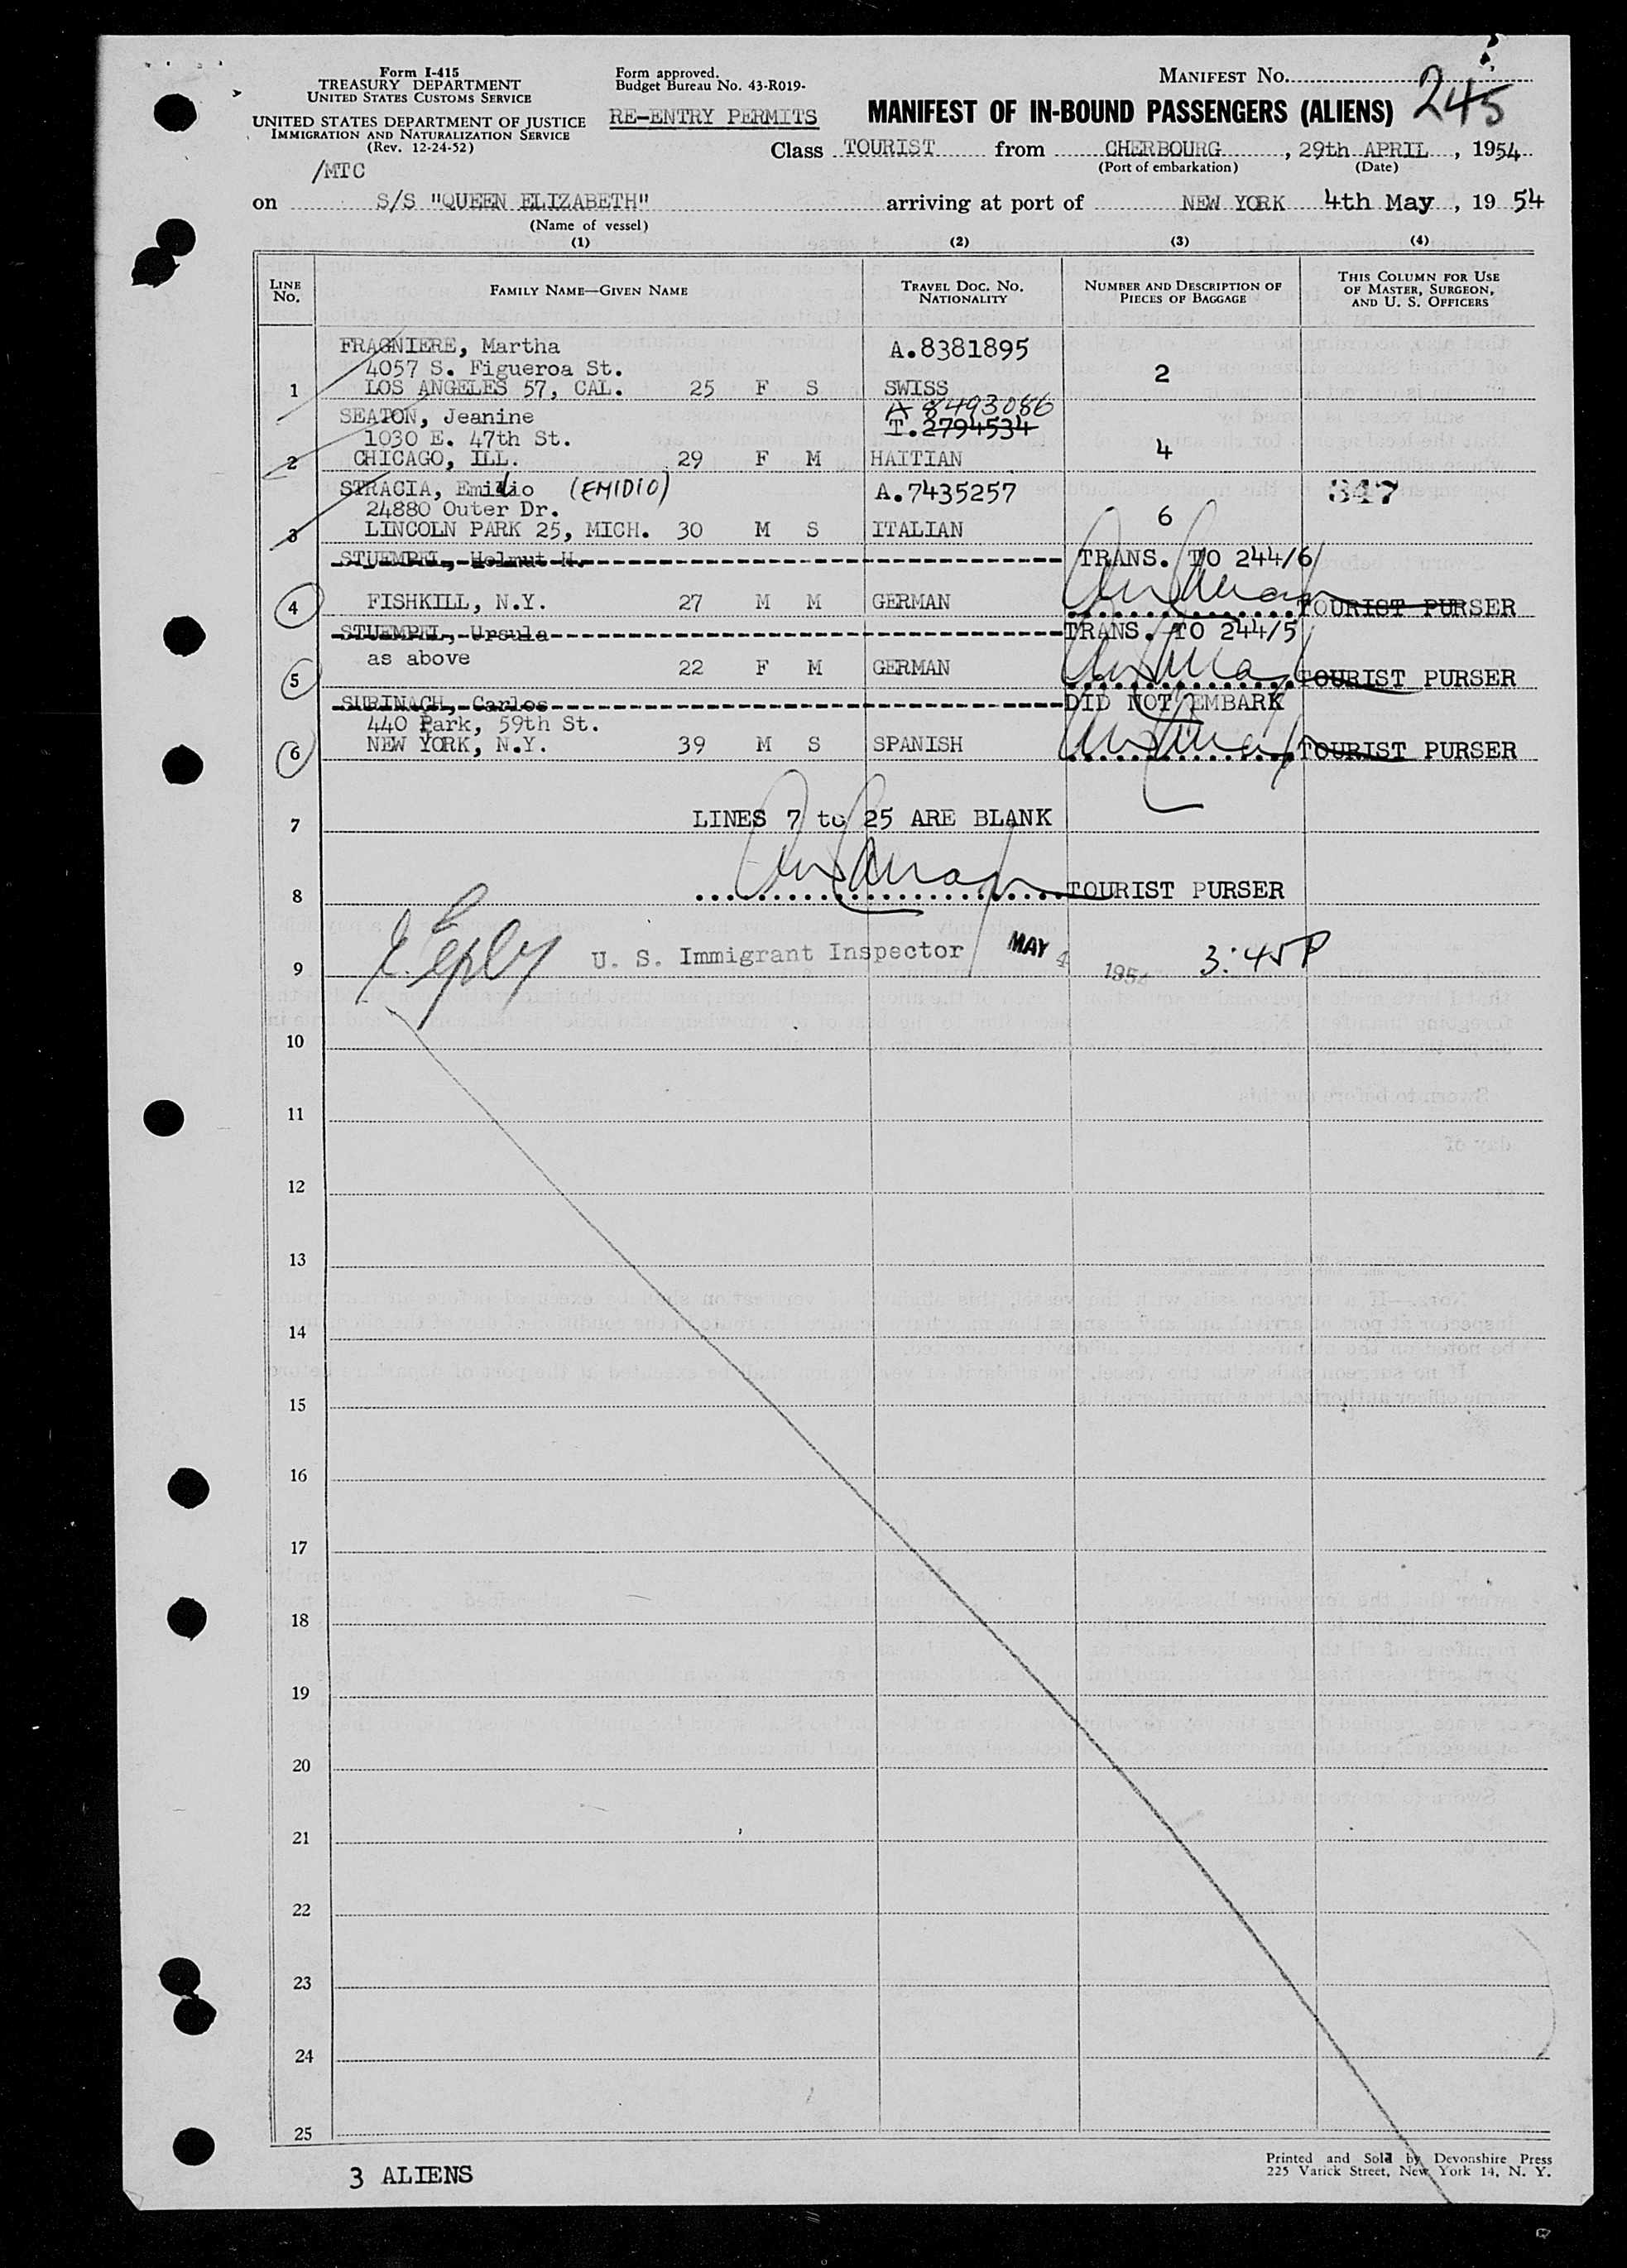 Form I-415
TREASURY DEPARTMENT
UNITED STATES CUSTOMS SERVICE
UNITED STATES DEPARTMENT OF JUSTICE
IMMIGRATION AND NATURALIZATION SERVICE
(Rev. 12-24-52)
/MTC
Form approved.
Budget Bureau No. 43-R019-
RE-ENTRY PERMITS
MANIFEST NO.
245
MANIFEST OF IN-BOUND PASSENGERS (ALIENS)
Class TOURIST from CHERBOURG, 29th APRIL, 1954
(Port of embarkation) (Date)
on S/S "QUEEN ELIZABETH" arriving at port of NEW YORK 4th May, 19 54
(Name of vessel)
(1) (2) (3) (4)
LINE NO. FAMILY NAME—GIVEN NAME TRAVEL DOC. NO. NATIONALITY NUMBER AND DESCRIPTION OF PIECES OF BAGGAGE THIS COLUMN FOR USE OF MASTER, SURGEON, AND U. S. OFFICERS
FRAGNIERE, Martha A.8381895
4057 S. Figueroa St. 2
1 LOS ANGELES 57, CAL. 25 F S SWISS
A 8493086
SEATON, Jeanine T.2794534
1030 E. 47th St. 4
2 CHICAGO, ILL. 29 F M HAITIAN
STRACIA, Emilio (EMIDIO) A.7435257 347
24880 Outer Dr. 6
3 LINCOLN PARK 25, MICH. 30 M S ITALIAN
STUEMPEL, Helmut H. TRANS. TO 244/6
4 FISHKILL, N.Y. 27 M M GERMAN TOURIST PURSER
STUEMPEL, Ursula TRANS. TO 244/5
as above
5 22 F M GERMAN TOURIST PURSER
SURINACH, Carlos DID NOT EMBARK
440 Park, 59th St.
6 NEW YORK, N.Y. 39 M S SPANISH TOURIST PURSER
7 LINES 7 to 25 ARE BLANK
8 TOURIST PURSER
9 U. S. Immigrant Inspector MAY 4 1954 3:45P
10
11
12
13
14
15
16
17
18
19
20
21
22
23
24
25
3 ALIENS
Printed and Sold by Devonshire Press
225 Varick Street, New York 14, N. Y.